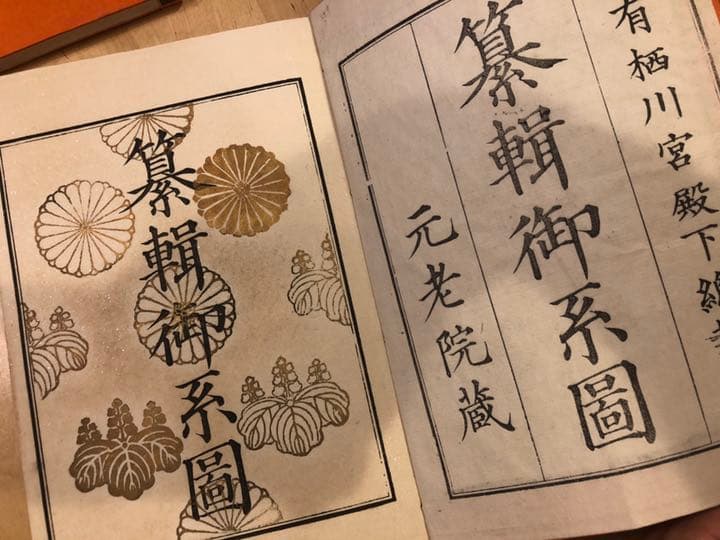 有栖川宮殿下
纂輯御系圖
元老院蔵
纂輯御系圖